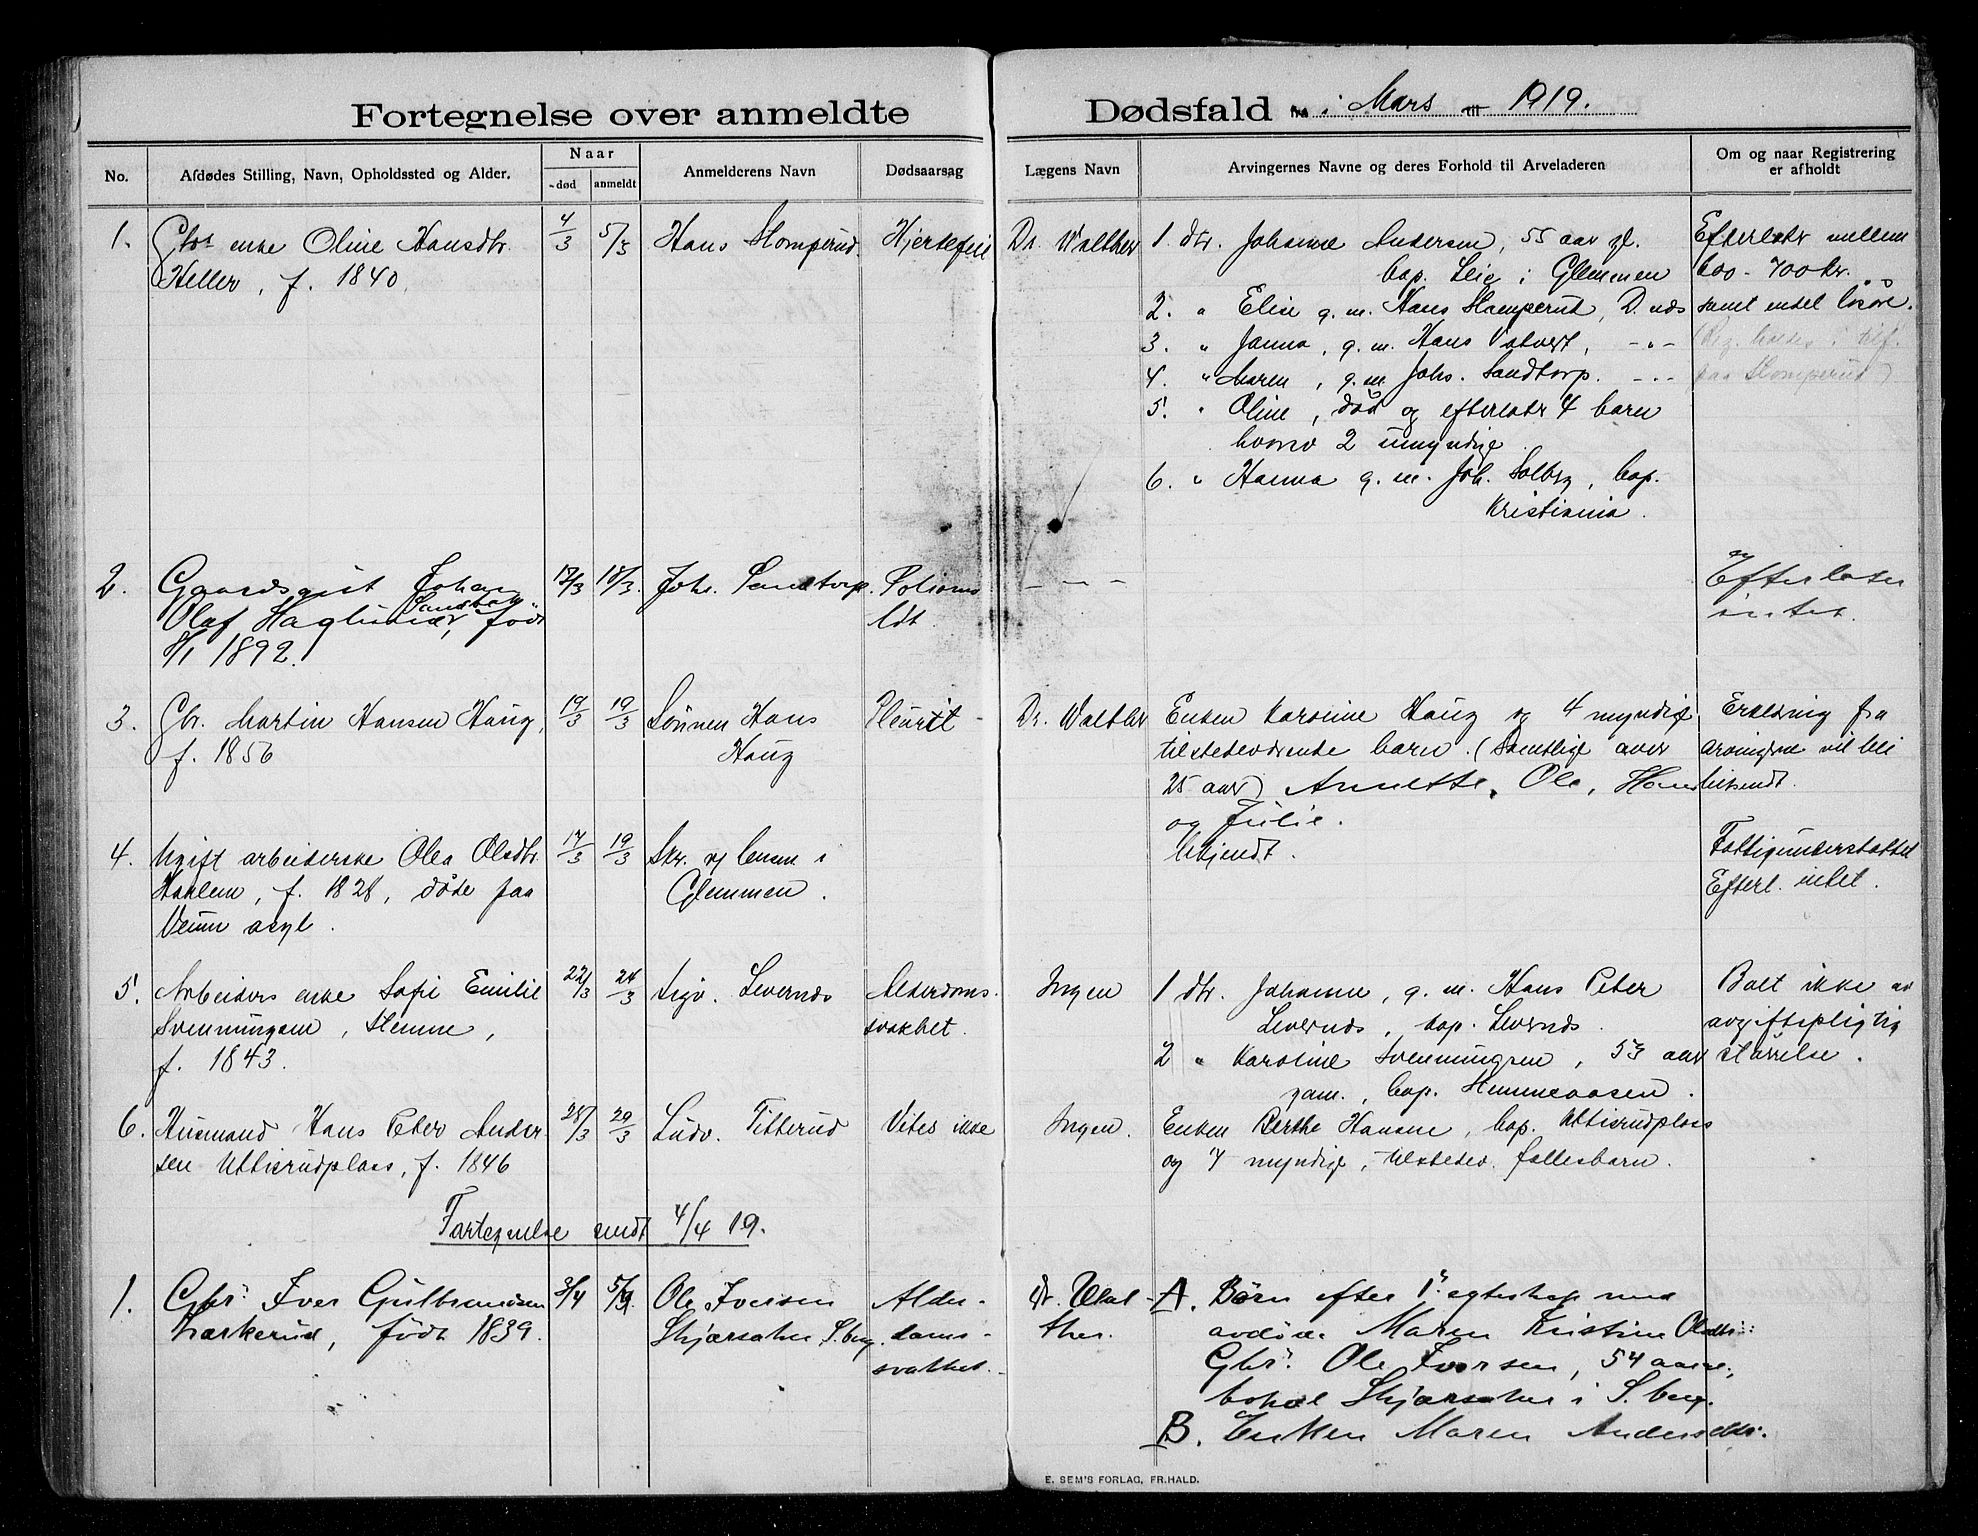 Fortegnelse over anmeldte Dødsfald fra i Mars til 1919.
No.
Afdødes Stilling, Navn, Opholdssted og Alder.
Naar
død
anmeldt
Anmelderens Navn
Dødsaarsag
Lægens Navn
Arvingernes Navne og deres Forhold til Arveladeren
Om og naar Registrering
er afholdt
1.
enke Oline Hansdtr.
Heller, f. 1840.
4/3
5/3
Hans Stomperud.
Hjertefeil
Dr. Walther
1. dtr. Johanne Andersen, 55 aar gl.
bop. Leie i Glemmen
2. " Elise g. m. Hans Stomperud, D. nds
3. " Janna, g. m. Hans Valvert, -"-
4. " Maren, g. m. Johs. Sandtorp. -"-
5. " Oline, død og efterlatr 4 barn
hvorav 2 umyndige.
6. " Hanna g. m. Joh. Solberg, bop.
Kristiania.
Efterlatr mellem
600 - 700 kr.
samt endel løsøre.
(Reg. holdes i tilf.
paa Stomperud)
2.
Gaardsgut Johan
Olaf Haglund, født
8/1 1892.
17/3
18/3
Johs. Sandtorp.
- " -
Efterlater
intet.
3.
Gbr. Martin Hansen Haug,
f. 1856
19/3
19/3
Sønnen Hans
Haug
Pleurit
Dr. Walther
Enken Karoline Haug og 4 myndige
tilstedeværende barn. (Samtlige over
25 aar) Annette, Ole, Hans
og Julie.
Erklæring fra
arvingerne vil bli
indsendt.
4.
Ugift arbeiderske Olea Olsdtr.
Haalem, f. 1828, døde paa
Veum asyl.
17/3
19/3
i
Glemmen.
Ukjendt.
Fattigunderstøttet
Efterl. intet.
5.
Arbeiders enke Sofie Emilie
Svenningsen, Hemne,
f. 1843.
22/3
24/3
Sigv. Levernds
Alderdoms-
svakhet.
Ingen
1 dtr. Johanne, g. m. Hans Peter
Levernds, bop. Levernds.
2 " Karoline Svenningsen, 53 aar
gam., bop. Hemneaasen.
Boet ikke av
avgiftspligtig
størrelse.
6.
Husmand Hans Peter Ander-
sen Uttisrudplass, f. 1846
28/3
29/3
Ludv. Titterud
Vites ikke
Ingen.
Enken Berthe Hansen, bop. Uttisrudplass
og 7 myndige, tilstedev. fællesbarn.
Fortegnelse sendt 4/4 19.
1.
Gbr. Iver Gulbrandsen
Larkerud, født 1839.
3/4
5/4
Ole Iversen
Skjærsaker S.berg.
Alder-
doms-
svakhet.
Dr. Wal-
ther.
A. Børn efter 1ste egteskap med
avdøde Maren Kristine Olsdtr.:
Gbr. Ole Iversen, 54 aar,
bopæl Skjærsaker i S.berg.
B. Enken Maren Andersdtr.
E. SEM'S FORLAG, FR.HALD.